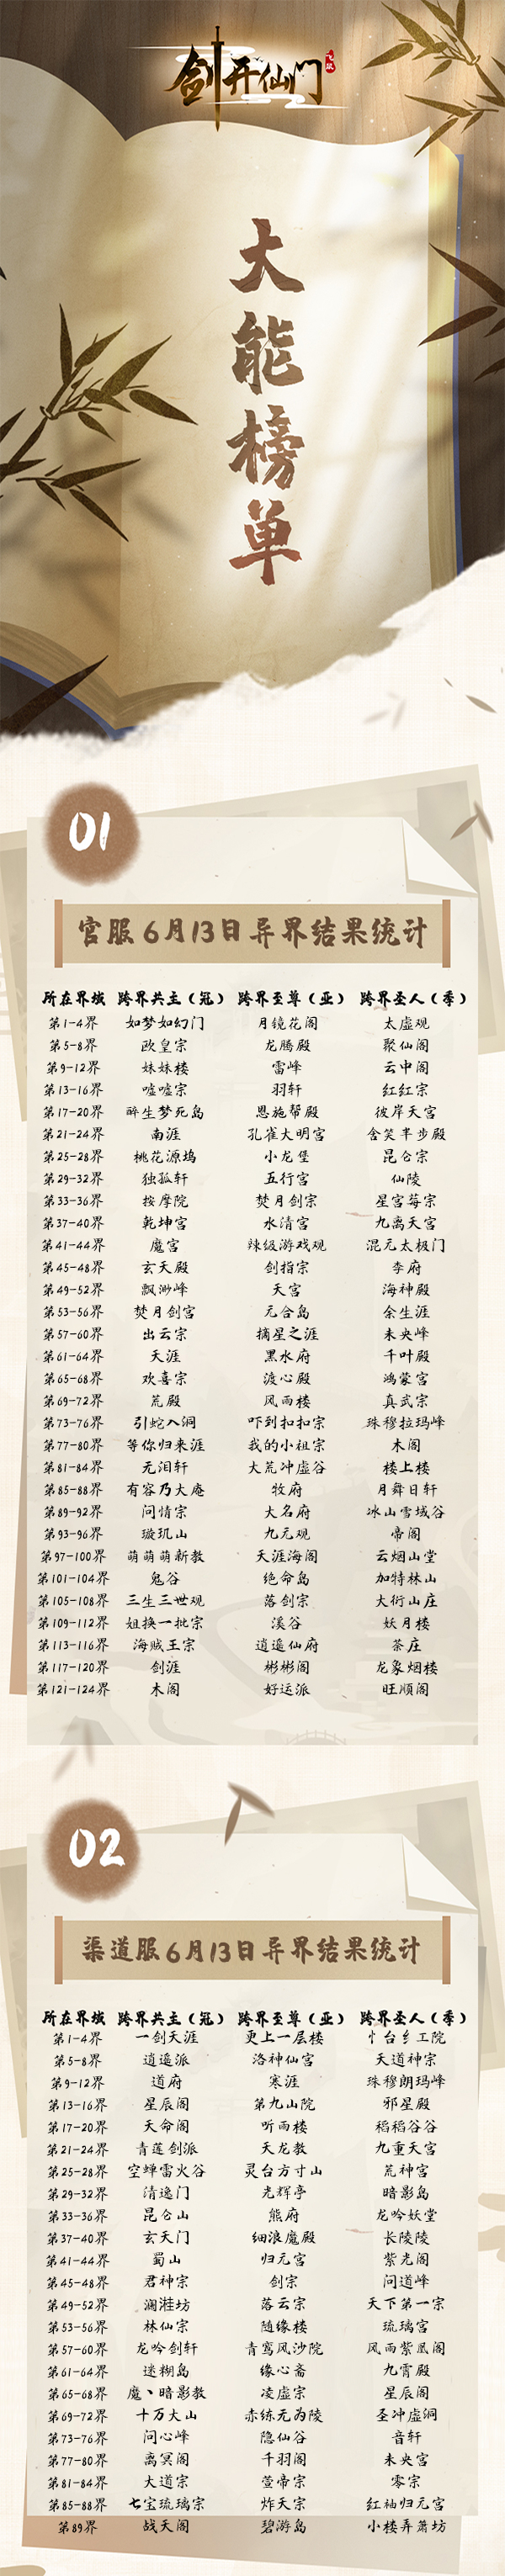 剑开仙门
飞升
大能榜单
01
官服6月13日异界结果统计
所在界域 跨界共主（冠） 跨界至尊（亚） 跨界圣人（季）
第1-4界 如梦如幻门 月镜花阁 太虚观
第5-8界 欧皇宗 龙腾殿 聚仙阁
第9-12界 妹妹楼 雷峰 云中阁
第13-16界 嘘嘘宗 羽轩 红红宗
第17-20界 醉生梦死岛 恩施帮殿 彼岸天宫
第21-24界 南涯 孔雀大明宫 含笑半步殿
第25-28界 桃花源坞 小龙堡 昆仑宗
第29-32界 独孤轩 五行宫 仙陵
第33-36界 按摩院 焚月剑宗 星宫莓宗
第37-40界 乾坤宫 水清宫 九离天宫
第41-44界 魔宫 辣级游戏观 混元太极门
第45-48界 玄天殿 剑指宗 李府
第49-52界 飘渺峰 天宫 海神殿
第53-56界 焚月剑宫 元合岛 余生涯
第57-60界 出云宗 摘星之涯 未央峰
第61-64界 天涯 黑水府 千叶殿
第65-68界 欢喜宗 渡心殿 鸿蒙宫
第69-72界 荒殿 风雨楼 真武宗
第73-76界 引蛇入洞 吓到扣扣宗 珠穆拉玛峰
第77-80界 等你归来涯 我的小祖宗 木阁
第81-84界 元泪轩 大荒冲虚谷 楼上楼
第85-88界 有容乃大庵 牧府 月舞日轩
第89-92界 问情宗 大名府 冰山雪域谷
第93-96界 璇玑山 九元观 帝阁
第97-100界 萌萌萌新教 天涯海阁 云烟山堂
第101-104界 鬼谷 绝命岛 加特林山
第105-108界 三生三世观 落剑宗 大衍山庄
第109-112界 姐换一批宗 溪谷 妖月楼
第113-116界 海贼王宗 逍遥仙府 茶庄
第117-120界 剑涯 彬彬阁 龙象烟楼
第121-124界 木阁 好运派 旺顺阁
02
渠道服6月13日异界结果统计
所在界域 跨界共主（冠） 跨界至尊（亚） 跨界圣人（季）
第1-4界 一剑天涯 更上一层楼 忄台纟工院
第5-8界 逍遥派 洛神仙宫 天道神宗
第9-12界 道府 寒涯 珠穆朗玛峰
第13-16界 星辰阁 第九山院 邪星殿
第17-20界 天命阁 听雨楼 稻稻谷谷
第21-24界 青莲剑派 天龙教 九重天宫
第25-28界 空蝉雷火谷 灵台方寸山 荒神宫
第29-32界 清逸门 光辉亭 暗影岛
第33-36界 昆仑山 熊府 龙吟妖堂
第37-40界 玄天门 细浪魔殿 长陵陵
第41-44界 蜀山 归元宫 紫光阁
第45-48界 君神宗 剑宗 问道峰
第49-52界 澜溎坊 落云宗 天下第一宗
第53-56界 林仙宗 随缘楼 琉璃宫
第57-60界 龙吟剑轩 青鸾风沙院 风雨紫凰阁
第61-64界 迷糊岛 缘心斋 九霄殿
第65-68界 魔丶暗影教 凌虚宗 星辰阁
第69-72界 十万大山 赤练元为陵 圣冲虚洞
第73-76界 问心峰 隐仙谷 音轩
第77-80界 离冥阁 千羽阁 未央宫
第81-84界 大道宗 萱帝宗 零宗
第85-88界 七宝琉璃宗 炸天宗 红袖归元宫
第89界 战天阁 碧游岛 小楼弄萧坊